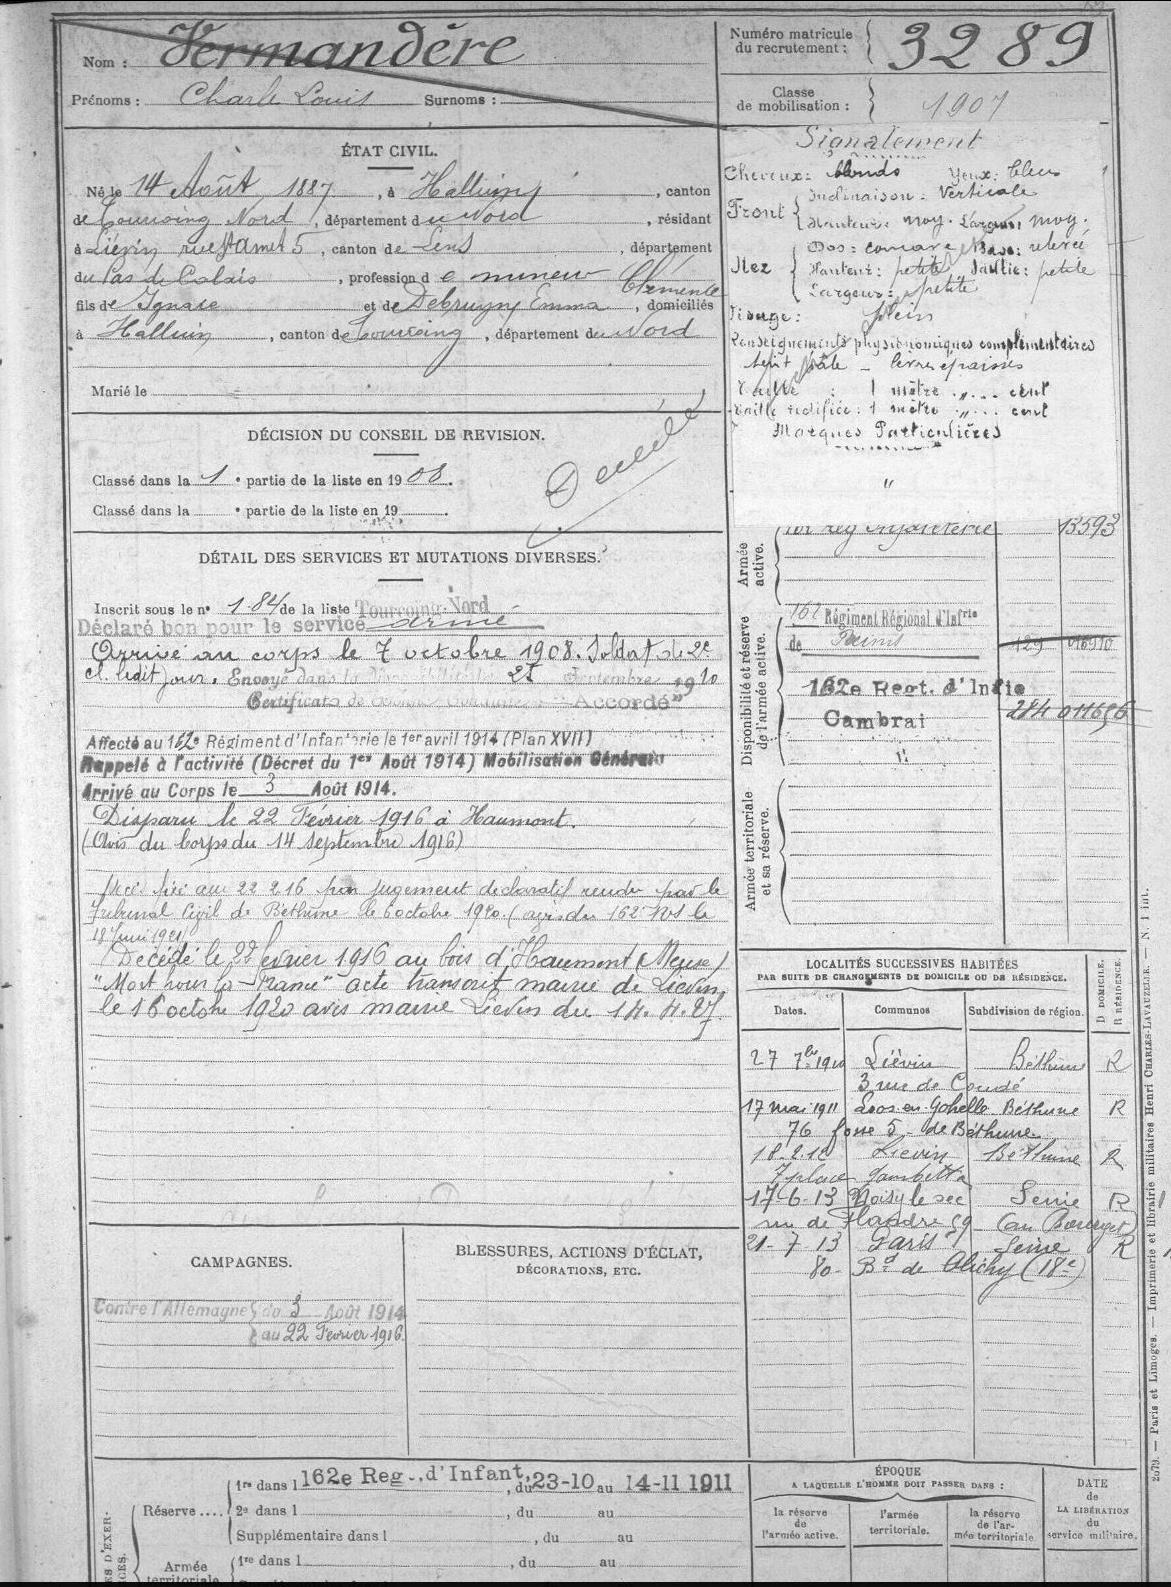 Nom : Vermandère
Prénoms : Charle Louis Surnoms :
Numéro matricule du recrutement : 3289
Classe de mobilisation : 1907
ÉTAT CIVIL.
Né le 14 Août 1887, à Halluin, canton
de Tourcoing Nord, département du Nord, résidant
à Liévin rue St Amet 5, canton de Lens, département
du Pas de Calais, profession de mineur
fils de Ignace et de Debruyny Emma Clémente, domiciliés
à Halluin, canton de Tourcoing, département du Nord
Marié le
DÉCISION DU CONSEIL DE REVISION.
Classé dans la 1e partie de la liste en 1908.
Classé dans la e partie de la liste en 19
Décédé
DÉTAIL DES SERVICES ET MUTATIONS DIVERSES.
Inscrit sous le no 184 de la liste Tourcoing-Nord
Déclaré bon pour le service armé
Arrivé au corps le 7 octobre 1908. Soldat de 2e
cl. ledit jour. Envoyé dans la 25 Septembre 1910
Certificat de bonne conduite "Accordé"
Affecté au 162e Régiment d'Infanterie le 1er avril 1914 (Plan XVII)
Rappelé à l'activité (Décret du 1er Août 1914) Mobilisation Générale
Arrivé au Corps le 3 Août 1914.
Disparu le 22 Février 1916 à Haumont.
(Avis du Corps du 14 Septembre 1916)
Décès fixé au 22 2 16 par jugement déclaratif rendu par le
Tribunal Civil de Béthune le 6 octobre 1920. (avis du 162e
18 Juin 1921)
Décédé le 22 février 1916 au bois d'Haumont (Meuse)
"Mort pour la France" acte transcrit mairie de Liévin
le 16 octobre 1920 avis mairie Liévin du 14.4.27.
Signalement
Cheveux : blonds Yeux : bleus
Front { Inclinaison : Verticale
Hauteur : moy. Largeur : moy.
Nez { Dos : concave Base : relevée
Hauteur : petite Saillie : petite
Largeur : petite
Visage : plein
Renseignements physionomiques complémentaires
teint pâle - lèvres épaisses
Taille : 1 mètre „ cent
Taille rectifiée : 1 mètre „ cent
Marques Particulières
"
Armée active. { Infanterie 13593
Disponibilité et réserve de l'armée active. {
162 Régiment Régional d'Infrie
de Reims 129 016910
162e Regt. d'Infie
Cambrai 284 011696
Armée territoriale et sa réserve. {
LOCALITÉS SUCCESSIVES HABITÉES
PAR SUITE DE CHANGEMENTS DE DOMICILE OU DE RÉSIDENCE.
Dates. Communes Subdivision de région. D DOMICILE, R RÉSIDENCE.
27 7bre 1910 Liévin Béthune R
3 rue de Condé
17 mai 1911 Loos-en-Gohelle Béthune R
76 fosse 5 - de Béthune
18-2-12 Liévin Béthune R
7 place Gambetta
17-6-13 Noisy le sec Seine R
rue de Flandre 59 (au Bourget)
21-7-13 Paris Seine R
80 - Bd de Clichy (18e)
CAMPAGNES.
Contre l'Allemagne { du 3 Août 1914
au 22 Février 1916.
BLESSURES, ACTIONS D'ÉCLAT,
DÉCORATIONS, ETC.
Réserve .... { 1re dans l 162e Reg., d'Infant., du 23-10 au 14-11 1911
2e dans l , du au
Supplémentaire dans l , du au
Armée territoriale { 1re dans l , du au
ÉPOQUE
A LAQUELLE L'HOMME DOIT PASSER DANS :
la réserve de l'armée active.
l'armée territoriale.
la réserve de l'armée territoriale
DATE de LA LIBÉRATION du service militaire.
2079. — Paris et Limoges. — Imprimerie et librairie militaires Henri CHARLES-LAVAUZELLE. — N. 1 int.